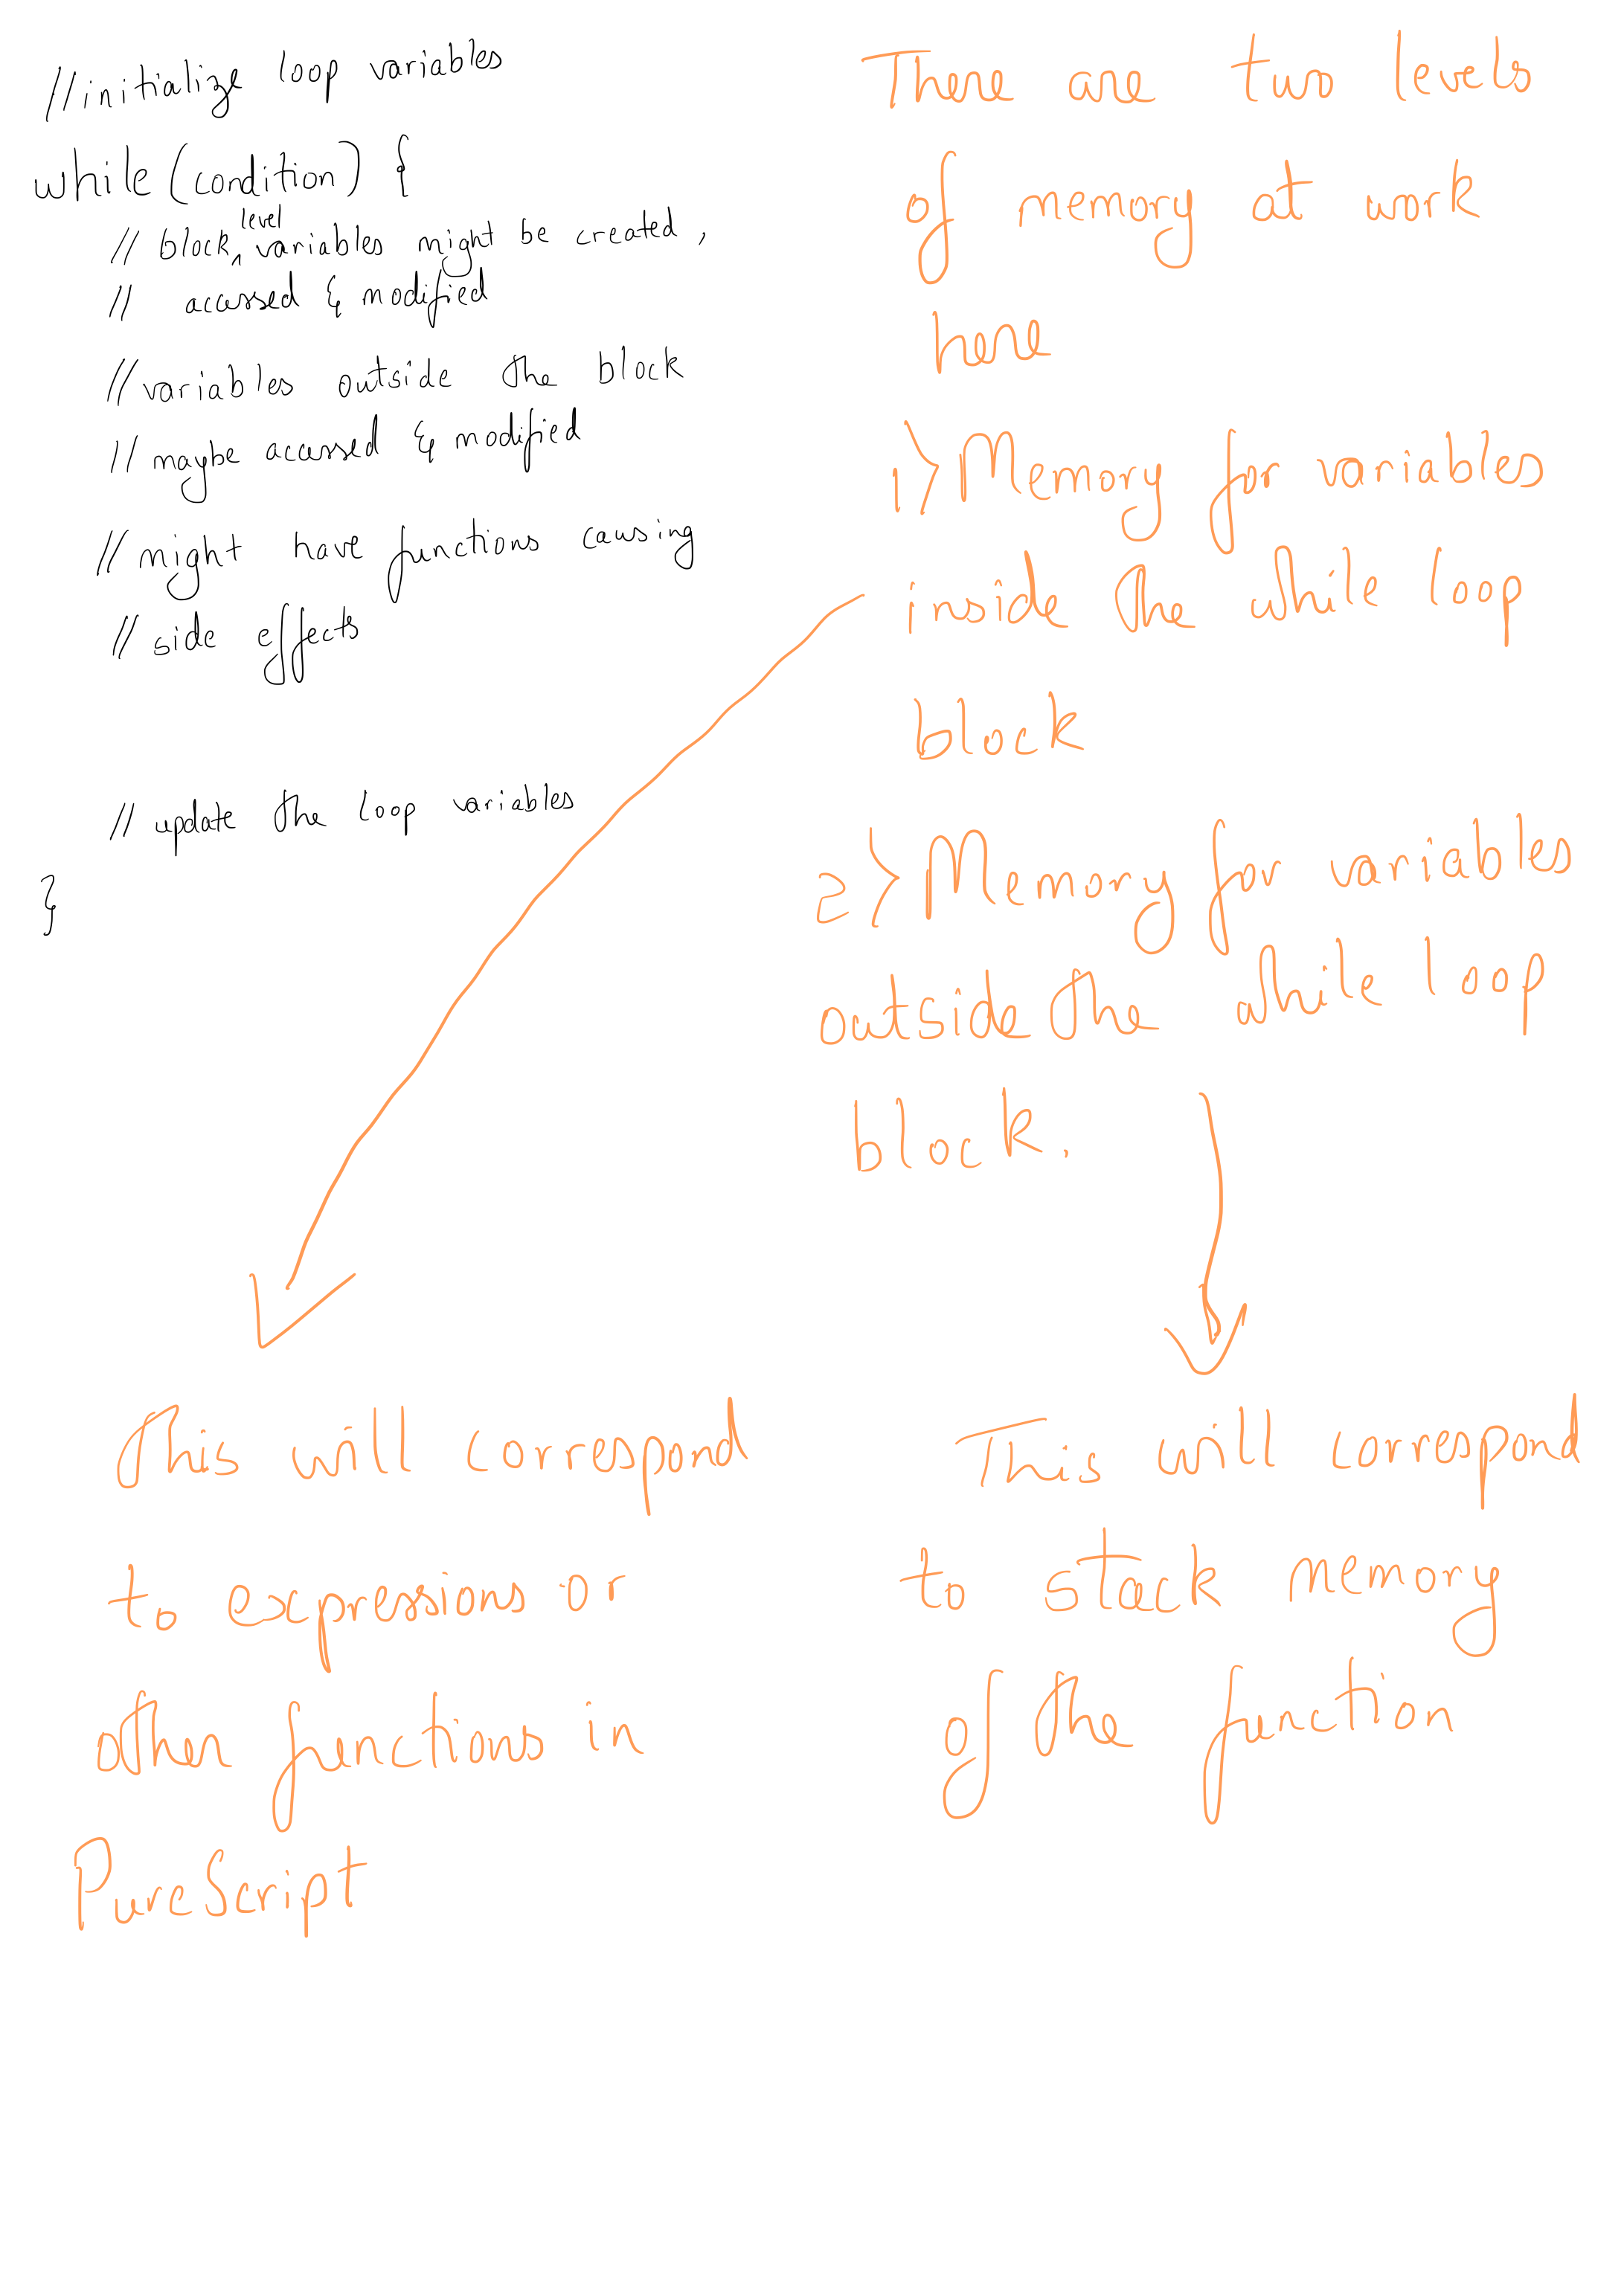 //initialize loop variables
while (condition) {
// block level variables might be created,
// accessed & modified
// variables outside the block
// maybe accessed & modified
// might have functions causing
// side effects
// update the loop variables
}
There are two levels
of memory at work
here
1> Memory for variables
inside the while loop
block
2> Memory for variables
outside the while loop
block.
This will correspond
to expressions or
other functions in
PureScript
This will correspond
to stack memory
of the function